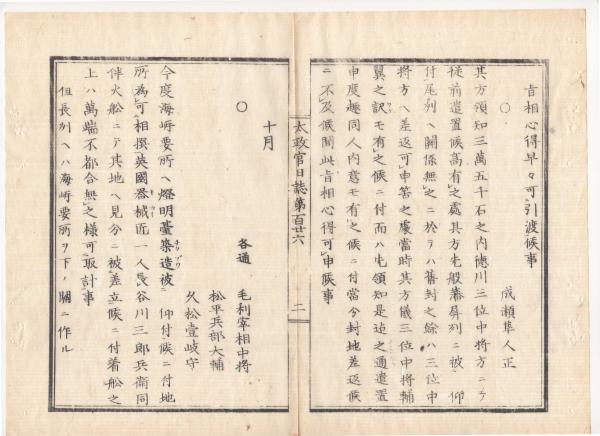 旨相心得早々可引渡候事
○
成瀬隼人正
其方領知三萬五千石之内徳川三位中將方ニテ
従前遣置候髙有之處其方先般藩屏列ニ被 仰
付尾列ヘ關係無之ニ於テハ舊封之餘ハ三位中
將方ヘ差返可申筈之處當時其方儀三位中將輔
翼之訳モ有之候ニ付而ハ先領知是迠之通遣置
申度趣同人内意モ有之候ニ付當今封地差返候
ニ不及候間此旨相心得可申候事
太政官日誌第百廿六
二
十月
○
各通
毛利宰相中將
松平兵部大輔
久松壹岐守
今度海岸要所ヘ燈明臺築造被 仰付候ニ付地
所為可相撰英國器械匠一人長谷川三郎兵衛同
伴火船ニテ其地ヘ見分ニ被差立候ニ付着船之
上ハ萬端不都合無之様可取計事
但長列ヘハ海岸要所ヲ下ノ關ニ作ル